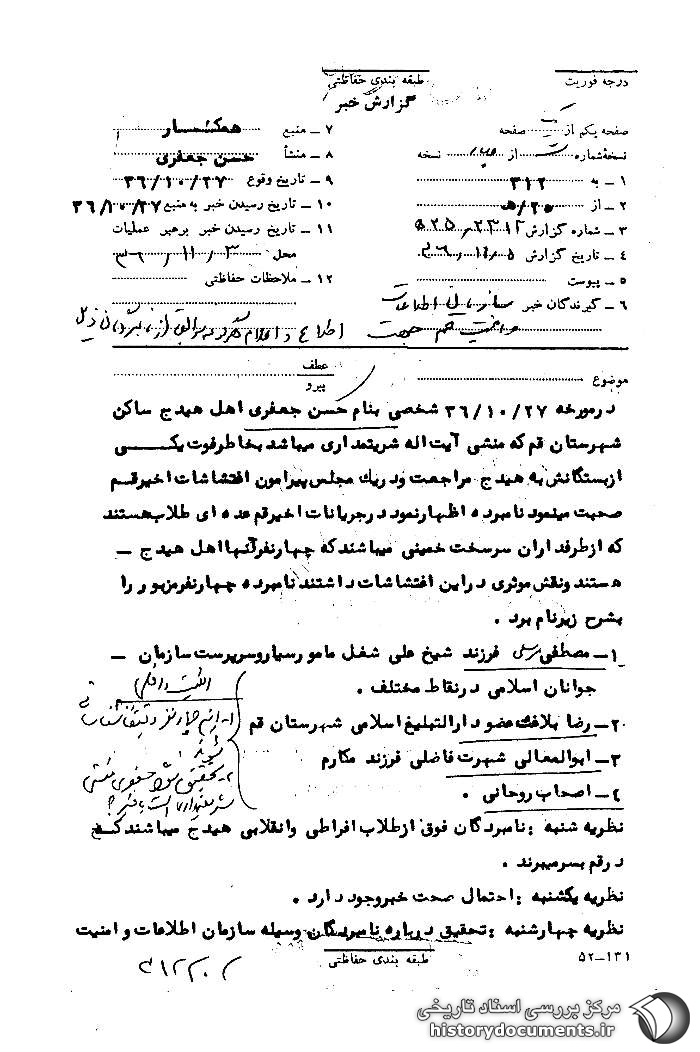 درجه فوریت
طبقه بندی حفاظتی
گزارش خبر
صفحه یکم از یک صفحه
نسخه شماره از نسخه
۱ـ به ۳۱۲
۲ـ از ۵/۲۵ه
۳ـ شماره گزارش
۴ـ تاریخ گزارش
۵ـ پیوست
۶ـ گیرندگان خبر سازمان اطلاعات
و امنیت قم جهت اطلاع و اعلام هرگونه سوابق از نامبردگان ذیل
۷ـ منبع همکنسار
۸ـ منشأ حسن جعفری
۹ـ تاریخ وقوع ۳۶/۱۰/۲۷
۱۰ـ تاریخ رسیدن خبر به منبع ۳۶/۱۰/۲۷
۱۱ـ تاریخ رسیدن خبر برهبر عملیات
محل ۳/۱۱/۳۶
۱۲ـ ملاحظات حفاظتی
موضوع
عطف
پیرو
درمورخه ۳۶/۱۰/۲۷ شخصی بنام حسن جعفری اهل هیدج ساکن
شهرستان قم که منشی آیت اله شریتمداری میباشد بخاطرفوت یکی
ازبستگانش به هیدج مراجعت ودریك مجلس پیرامون اغتشاشات اخیرقم
صحبت مینمود نامبرده اظهارنمود درجریانات اخیرقم عده ای طلاب هستند
که ازطرفداران سرسخت خمینی میباشند که چهارنفرآنها اهل هیدج ـ
هستند ونقش موثری دراین اغتشاشات داشتند نامبرده چهارنفرمزبور را
بشرح زیرنام برد .
۱ـ مصطفی فرزند شیخ علی شغل مامورسیاروسرپرست سازمان ـ
جوانان اسلامی درنقاط مختلف .
۲ـ رضا بلافت عضو دارالتبلیغ اسلامی شهرستان قم
۳ـ ابوالمعالی شهرت فاضلی فرزند مکارم
۴ـ اصحاب روحانی .
نظریه شنبه : نامبردگان فوق ازطلاب افراطی وانقلابی هیدج میباشند که
درقم بسرمیبرند .
نظریه یکشنبه : احتمال صحت خبروجود دارد .
نظریه چهارشنبه : تحقیق درباره نامبردگان وسیله سازمان اطلاعات و امنیت
طبقه بندی حفاظتی
۵۲ـ۱۳۱
مرکز بررسی اسناد تاریخی
historydocuments.ir